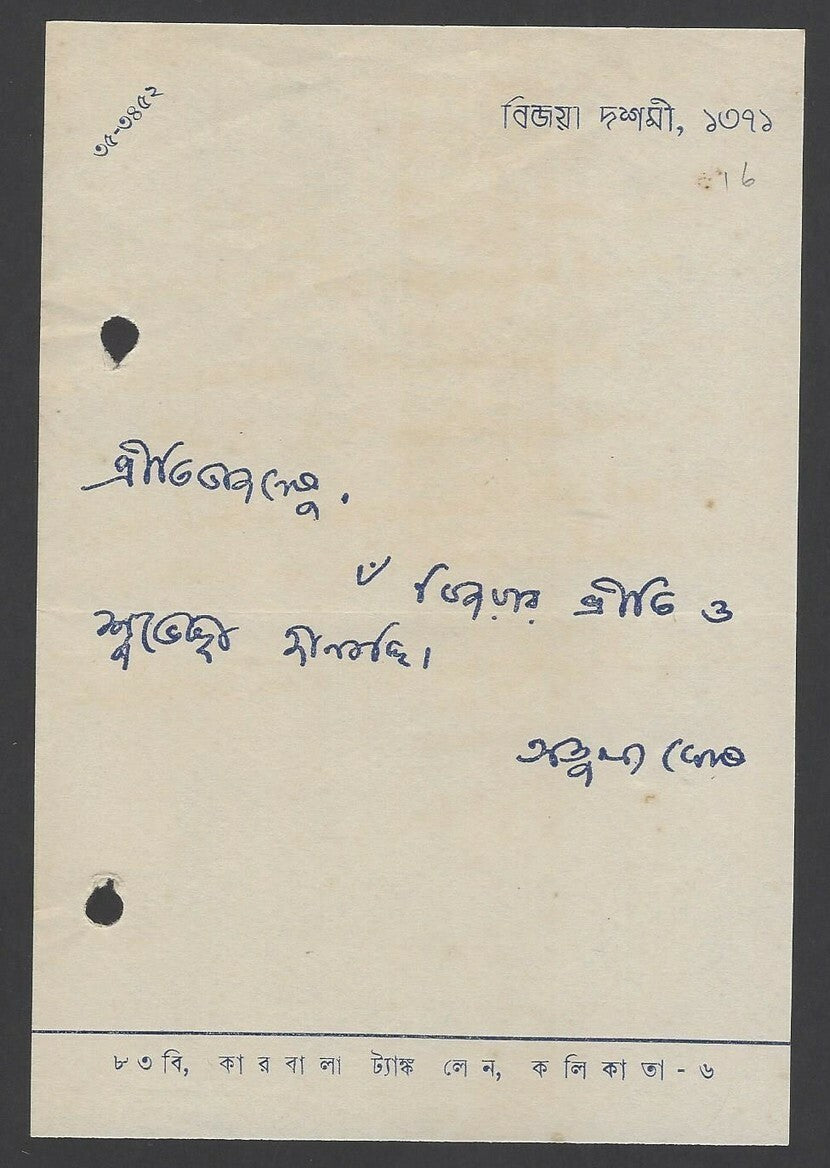 ৩৫-৩৪৫২
বিজয়া দশমী, ১৩৭১
16
প্রীতিভাজনেষু.
৺ বিজয়ার প্রীতি ও
শুভেচ্ছা জানাচ্ছি।
অতুল্য ঘোষ
৮৩বি, কারবালা ট্যাঙ্ক লেন, কলিকাতা-৬